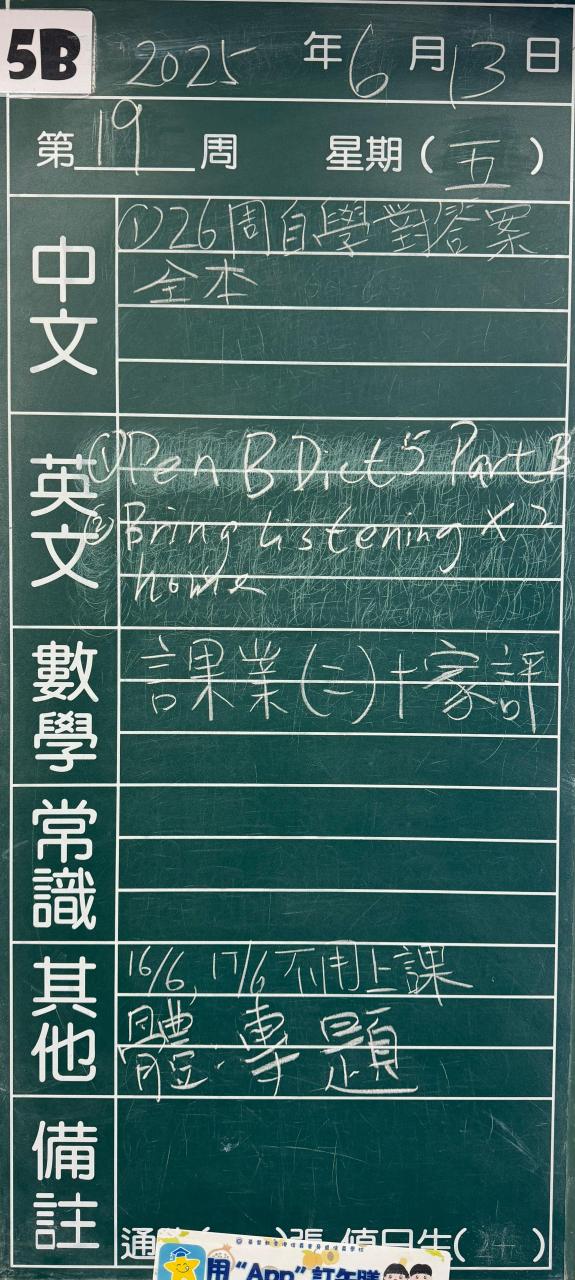 5B 2025年6月13日
第19周 星期(五)
中文
①26周自學對答案
全本
英文
①Pen B Dict 5 Part B
②Bring Listening X 2
home
數學
課業(二)+家評
常識
其他
16/6, 17/6 不用上課
體.專題
備註
通 張 值日生( )
用“App”訂午膳